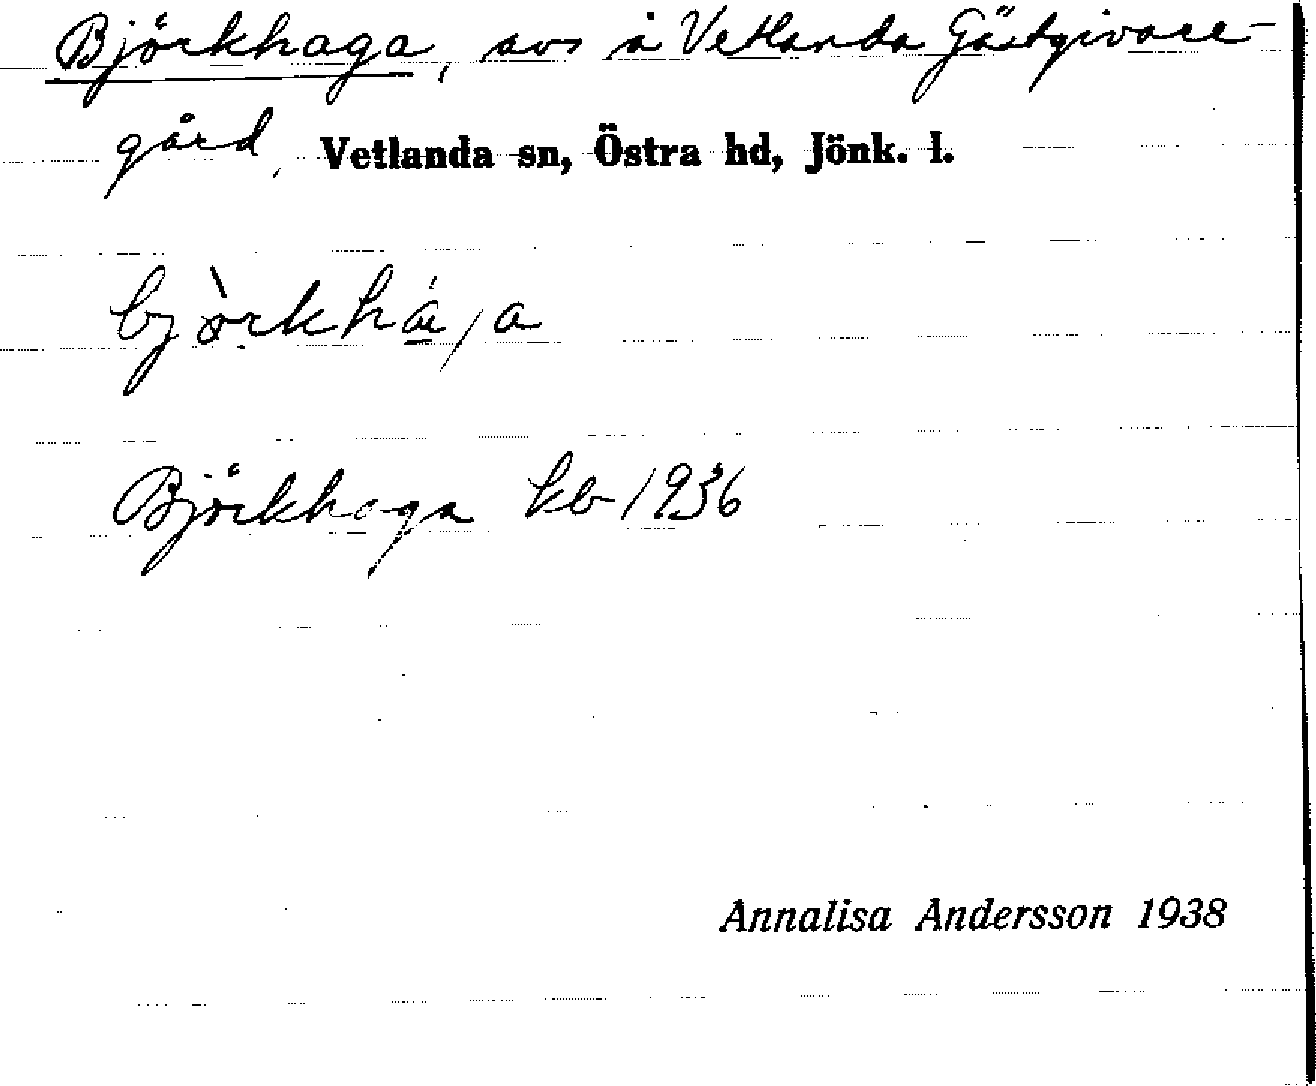 Björkhaga, avs å Vetlanda Gästgivare-
gård, Vetlanda sn, Östra hd, Jönk. l.
Björkhaga kb 1936
Annalisa Andersson 1938